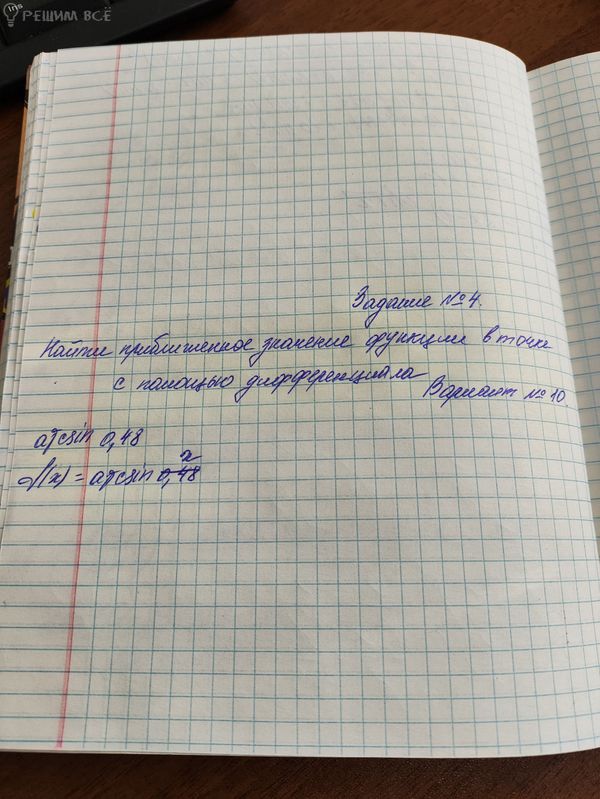 РЕШИМ ВСЁ
Задание № 4.
Найти приближенное значение функции в точке
с помощью дифференциала
Вариант № 10.
arcsin 0,48
f(x) = arcsin x